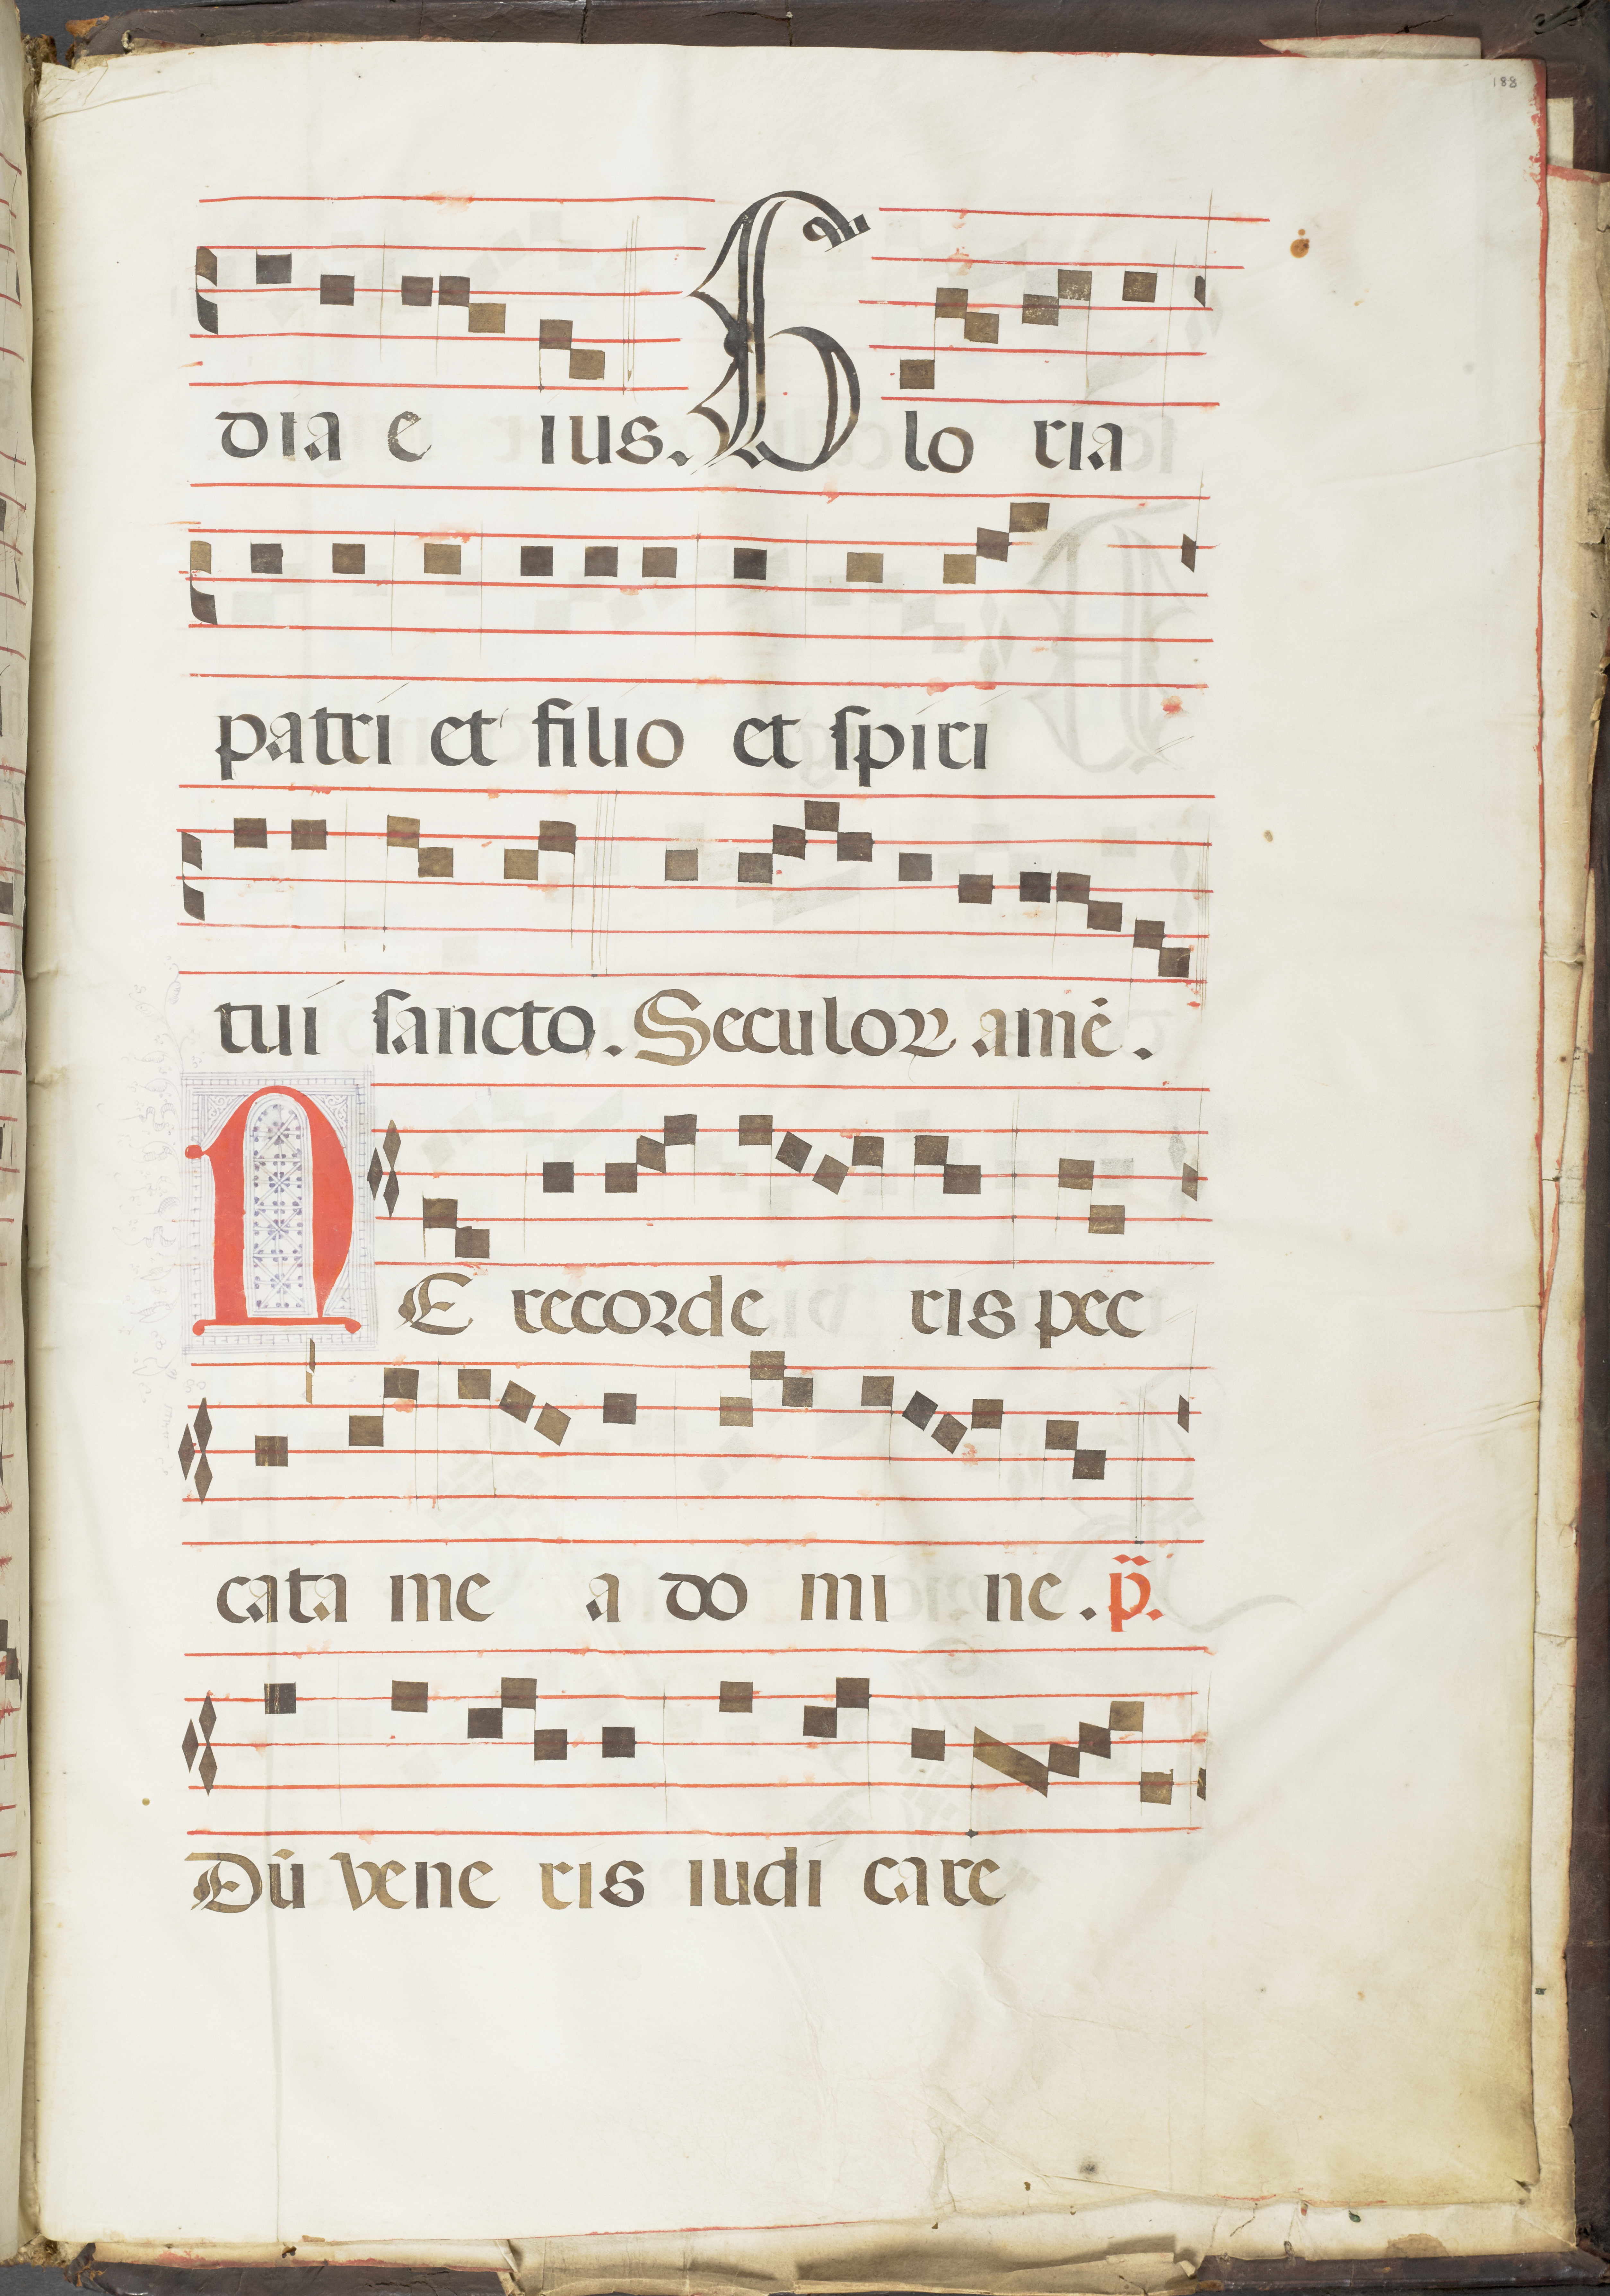 188
dia e ius. Glo ria
patri et filio et ſpiri
tui ſancto. Seculoꝝ amē.
NE recorde ris pec
cata me a do mi ne. p̈.
Dū vene ris iudi care